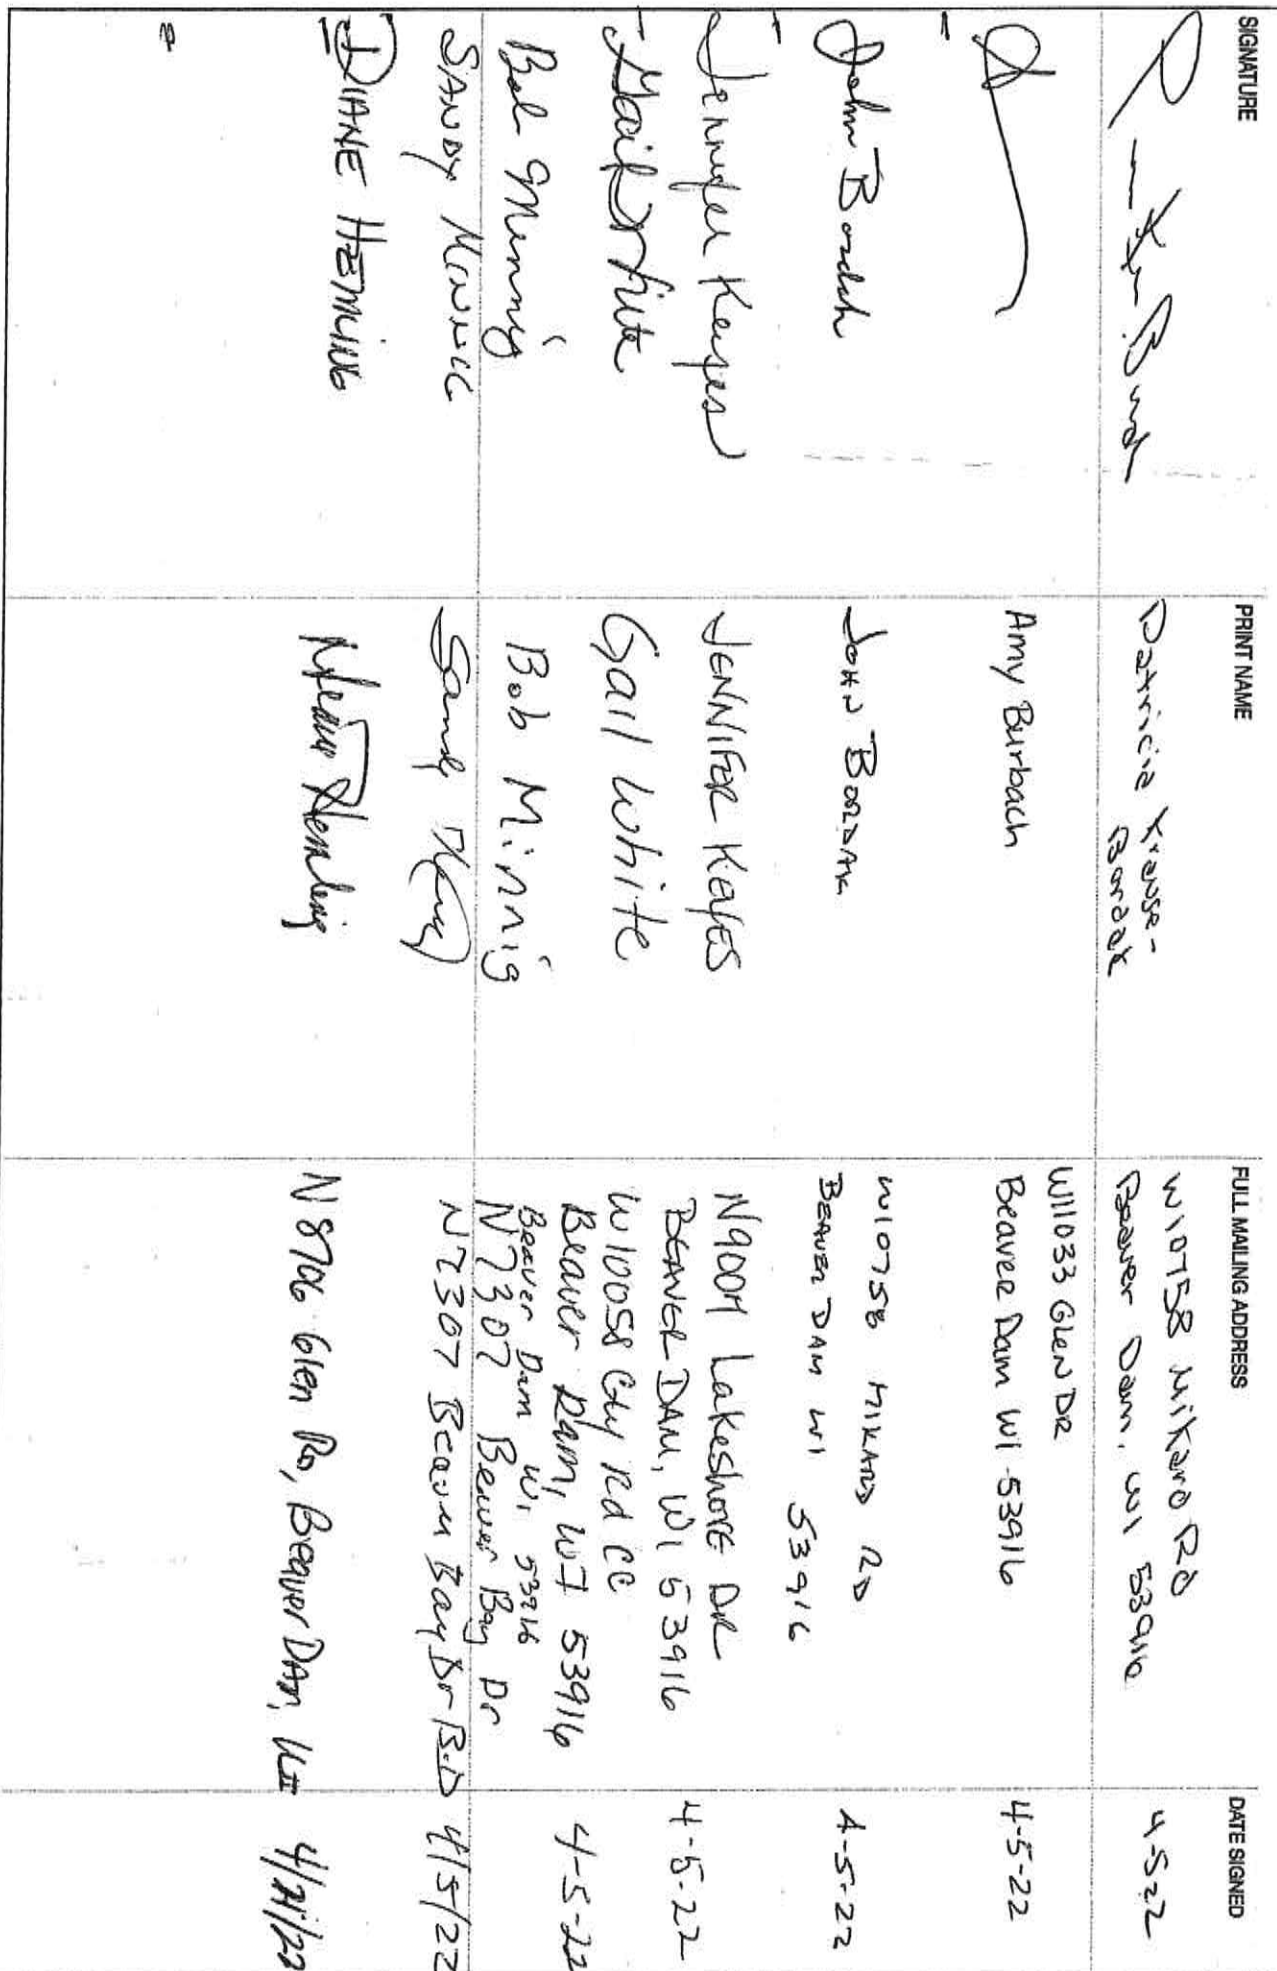 SIGNATURE PRINT NAME FULL MAILING ADDRESS DATE SIGNED
Patricia Kranse-
Bordak
W10758 Mikard Rd
Beaver Dam, WI 53916
4-5-22
Amy Burbach
W11033 Glen DR
Beaver Dam WI 53916
4-5-22
John Bordak
JOHN BORDAK
W10758 MIKARD RD
BEAVER DAM WI 53916
4-5-22
Jennifer Keyes
JENNIFER KEYES
N9004 Lakeshore DR
BEAVER DAM, WI 53916
4-5-22
Gail White
Gail White
W10058 Cty Rd CC
Beaver Dam, WI 53916
4-5-22
Bob Minnig
Bob Minnig
Beaver Dam Wi 53916
N7307 Beaver Bay Dr
SANDY MINNIG
Sandy
N7307 Beaver Bay Dr B.D
4/5/22
DIANE HEMLING
Diane Hemling
N8706 Glen RD, Beaver DAM, WI
4/21/22